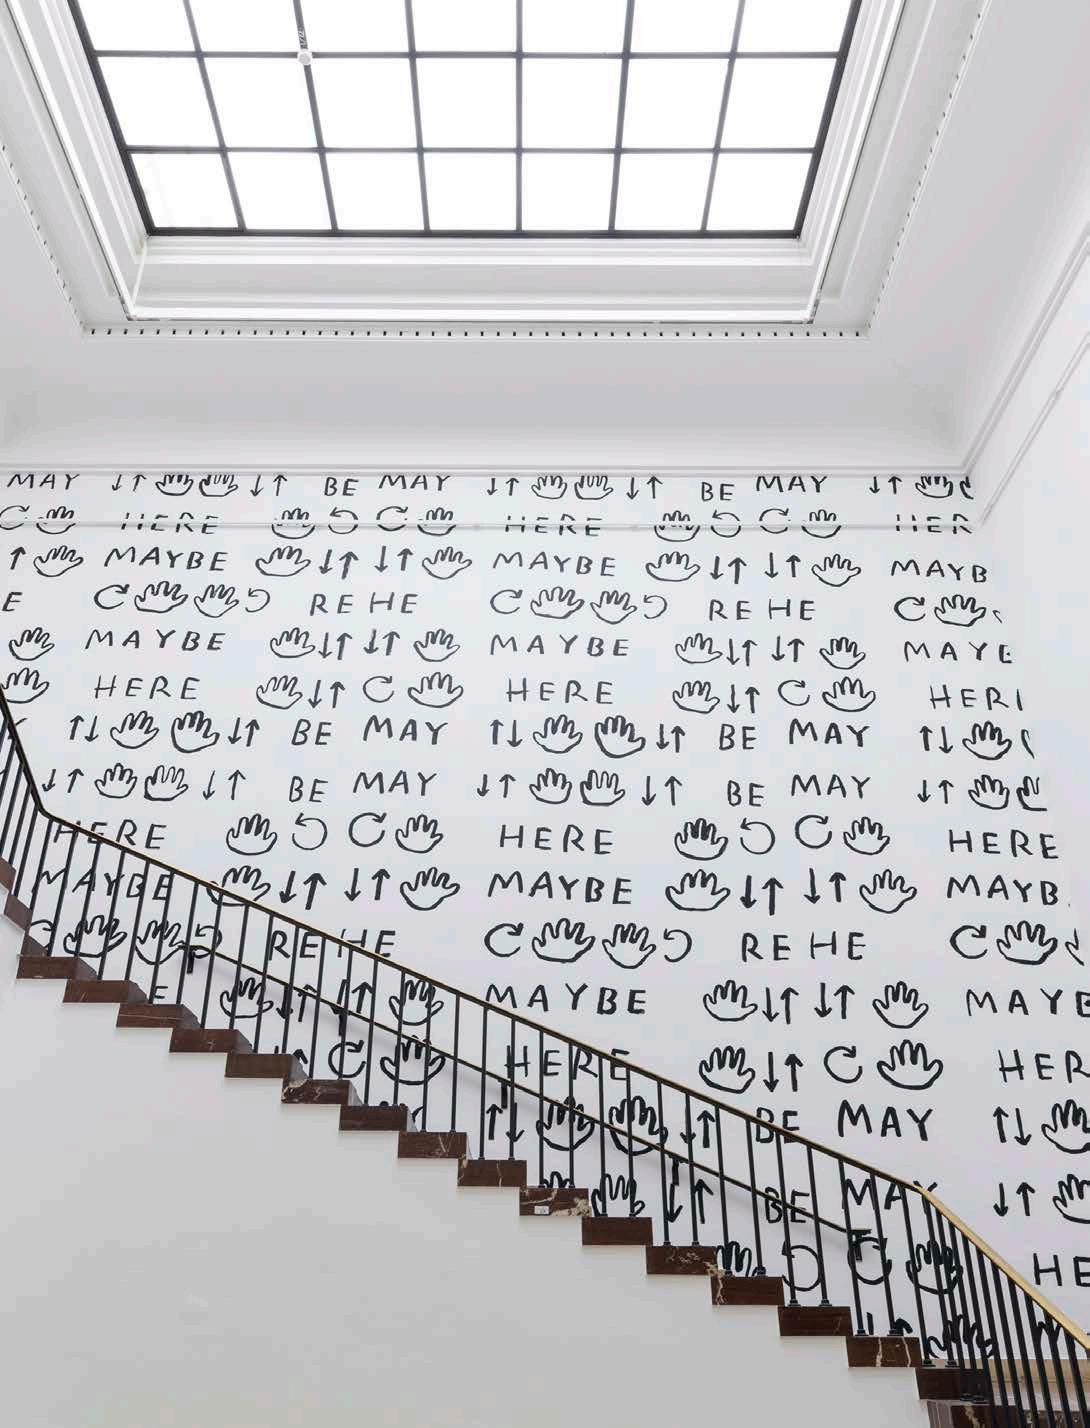 MAY ↓↑ ↓↑ BE MAY ↓↑ ↓↑ BE MAY ↓↑
HERE HERE HER
↑ MAYBE ↓↑ ↓↑ MAYBE ↓↑ ↓↑ MAYB
E RE HE RE HE
MAYBE ↓↑ ↓↑ MAYBE ↓↑ ↓↑ MAYE
HERE ↓↑ HERE ↓↑ HERI
↑↓ ↓↑ BE MAY ↑↓ ↓↑ BE MAY ↑↓
↓↑ ↓↑ BE MAY ↓↑ ↓↑ BE MAY ↓↑
HERE HERE HERE
MAYBE ↓↑ ↓↑ MAYBE ↓↑ ↓↑ MAYB
RE HE RE HE
E ↓↑ ↓↑ MAYBE ↓↑ ↓↑ MAYE
HERE ↓↑ HER
↑↓ ↓↑ BE MAY ↑↓
↓↑ BE MAY ↓↑
HE